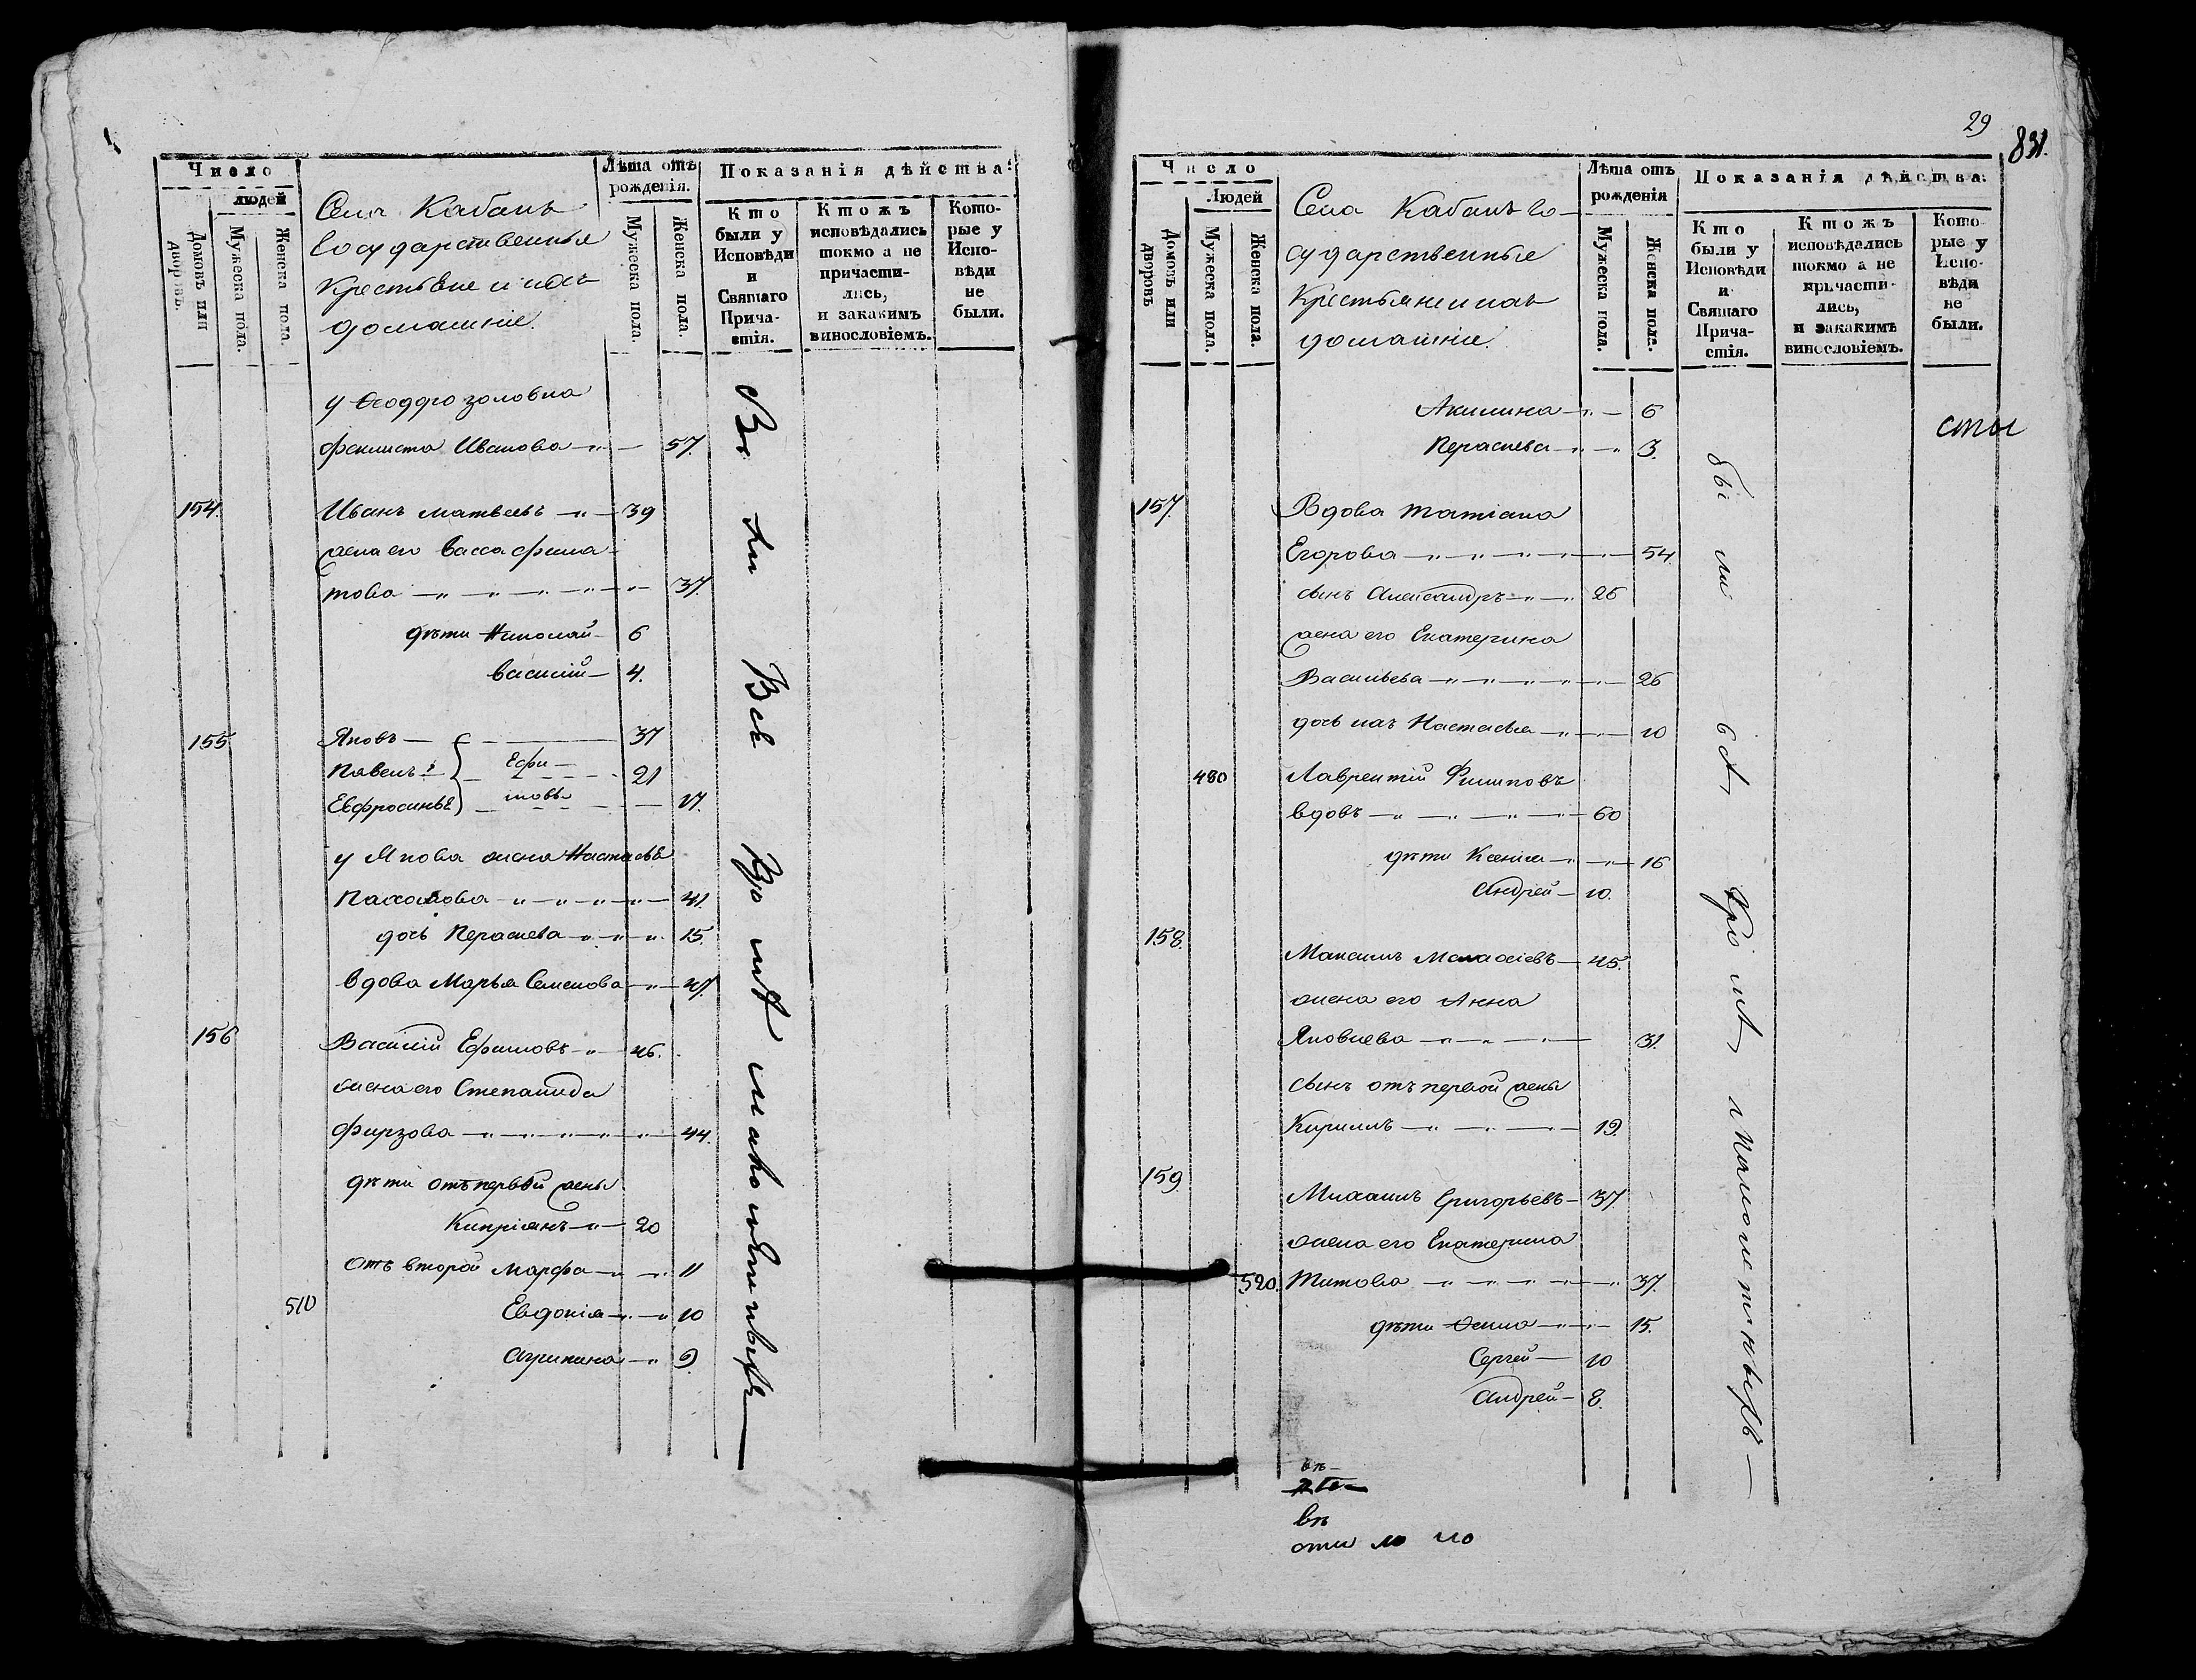 Число
людей
Домовъ или дворовъ.
Мужеска пола.
Женска пола.
Села Кабанъ
Государственные
Крестьяне и ихъ
домашніе.
Лѣта отъ рожденія.
Мужеска пола.
Женска пола.
Показанія дѣйства:
Кто были у Исповѣди и Святаго Прича-
стія.
Ктожъ исповѣдались токмо а не причасти-
лись, и закакимъ винословіемъ.
Кото-
рые у Испо-
вѣди не были.
у Ѳеодора золовка
Феклиста Иванова 57.
154. Иванъ Матвеевъ 39
жена его Васса Фила-
това 37.
дѣти Николай 6
Василій 4.
155. Яковъ 37
Павелъ Ефи- 21
Евфросинья мовы 17.
у Якова жена Настасья
Пахомова 41.
дочь Парасковья 15.
вдова Марья Семенова 47.
156 Василій Ефимовъ 46.
жена его Степанида
Фирзова 44.
дѣти отъ первой жены
Кипріянъ 20
отъ второй Марфа 11
510 Евдокія 10
Агрипина 9.
29
831.
Число
Людей
Домовъ или дворовъ
Мужеска пола.
Женска пола.
Села Кабанъ Го-
сударственные
Крестьяне и ихъ
домашніе.
Лѣта отъ рожденія
Мужеска пола.
Женска пола.
Показанія дѣйства:
Кто были у Исповѣди и Святаго Прича-
стія.
Ктожъ исповѣдались токмо а не причасти-
лись, и закакимъ винословіемъ.
Кото-
рые у Испо-
вѣди не были.
Акилина 6
3.
157. Вдова Татіана
Егорова 54.
сынъ Александръ 26
жена его Екатерина
Васильева 26
дочь ихъ Настасья 10
480 Лаврентій Филиповъ
вдовъ 60
дѣти Ксенія 16
Андрей 10.
158. Максимъ 45.
жена его Анна
Яковлева 31.
сынъ отъ первой жены
Кирилъ 19.
159. Михаилъ Григорьевъ 37.
жена его Екатерина
520. Титова 37.
дѣти 15.
Сергей 10
Андрей 8.
были